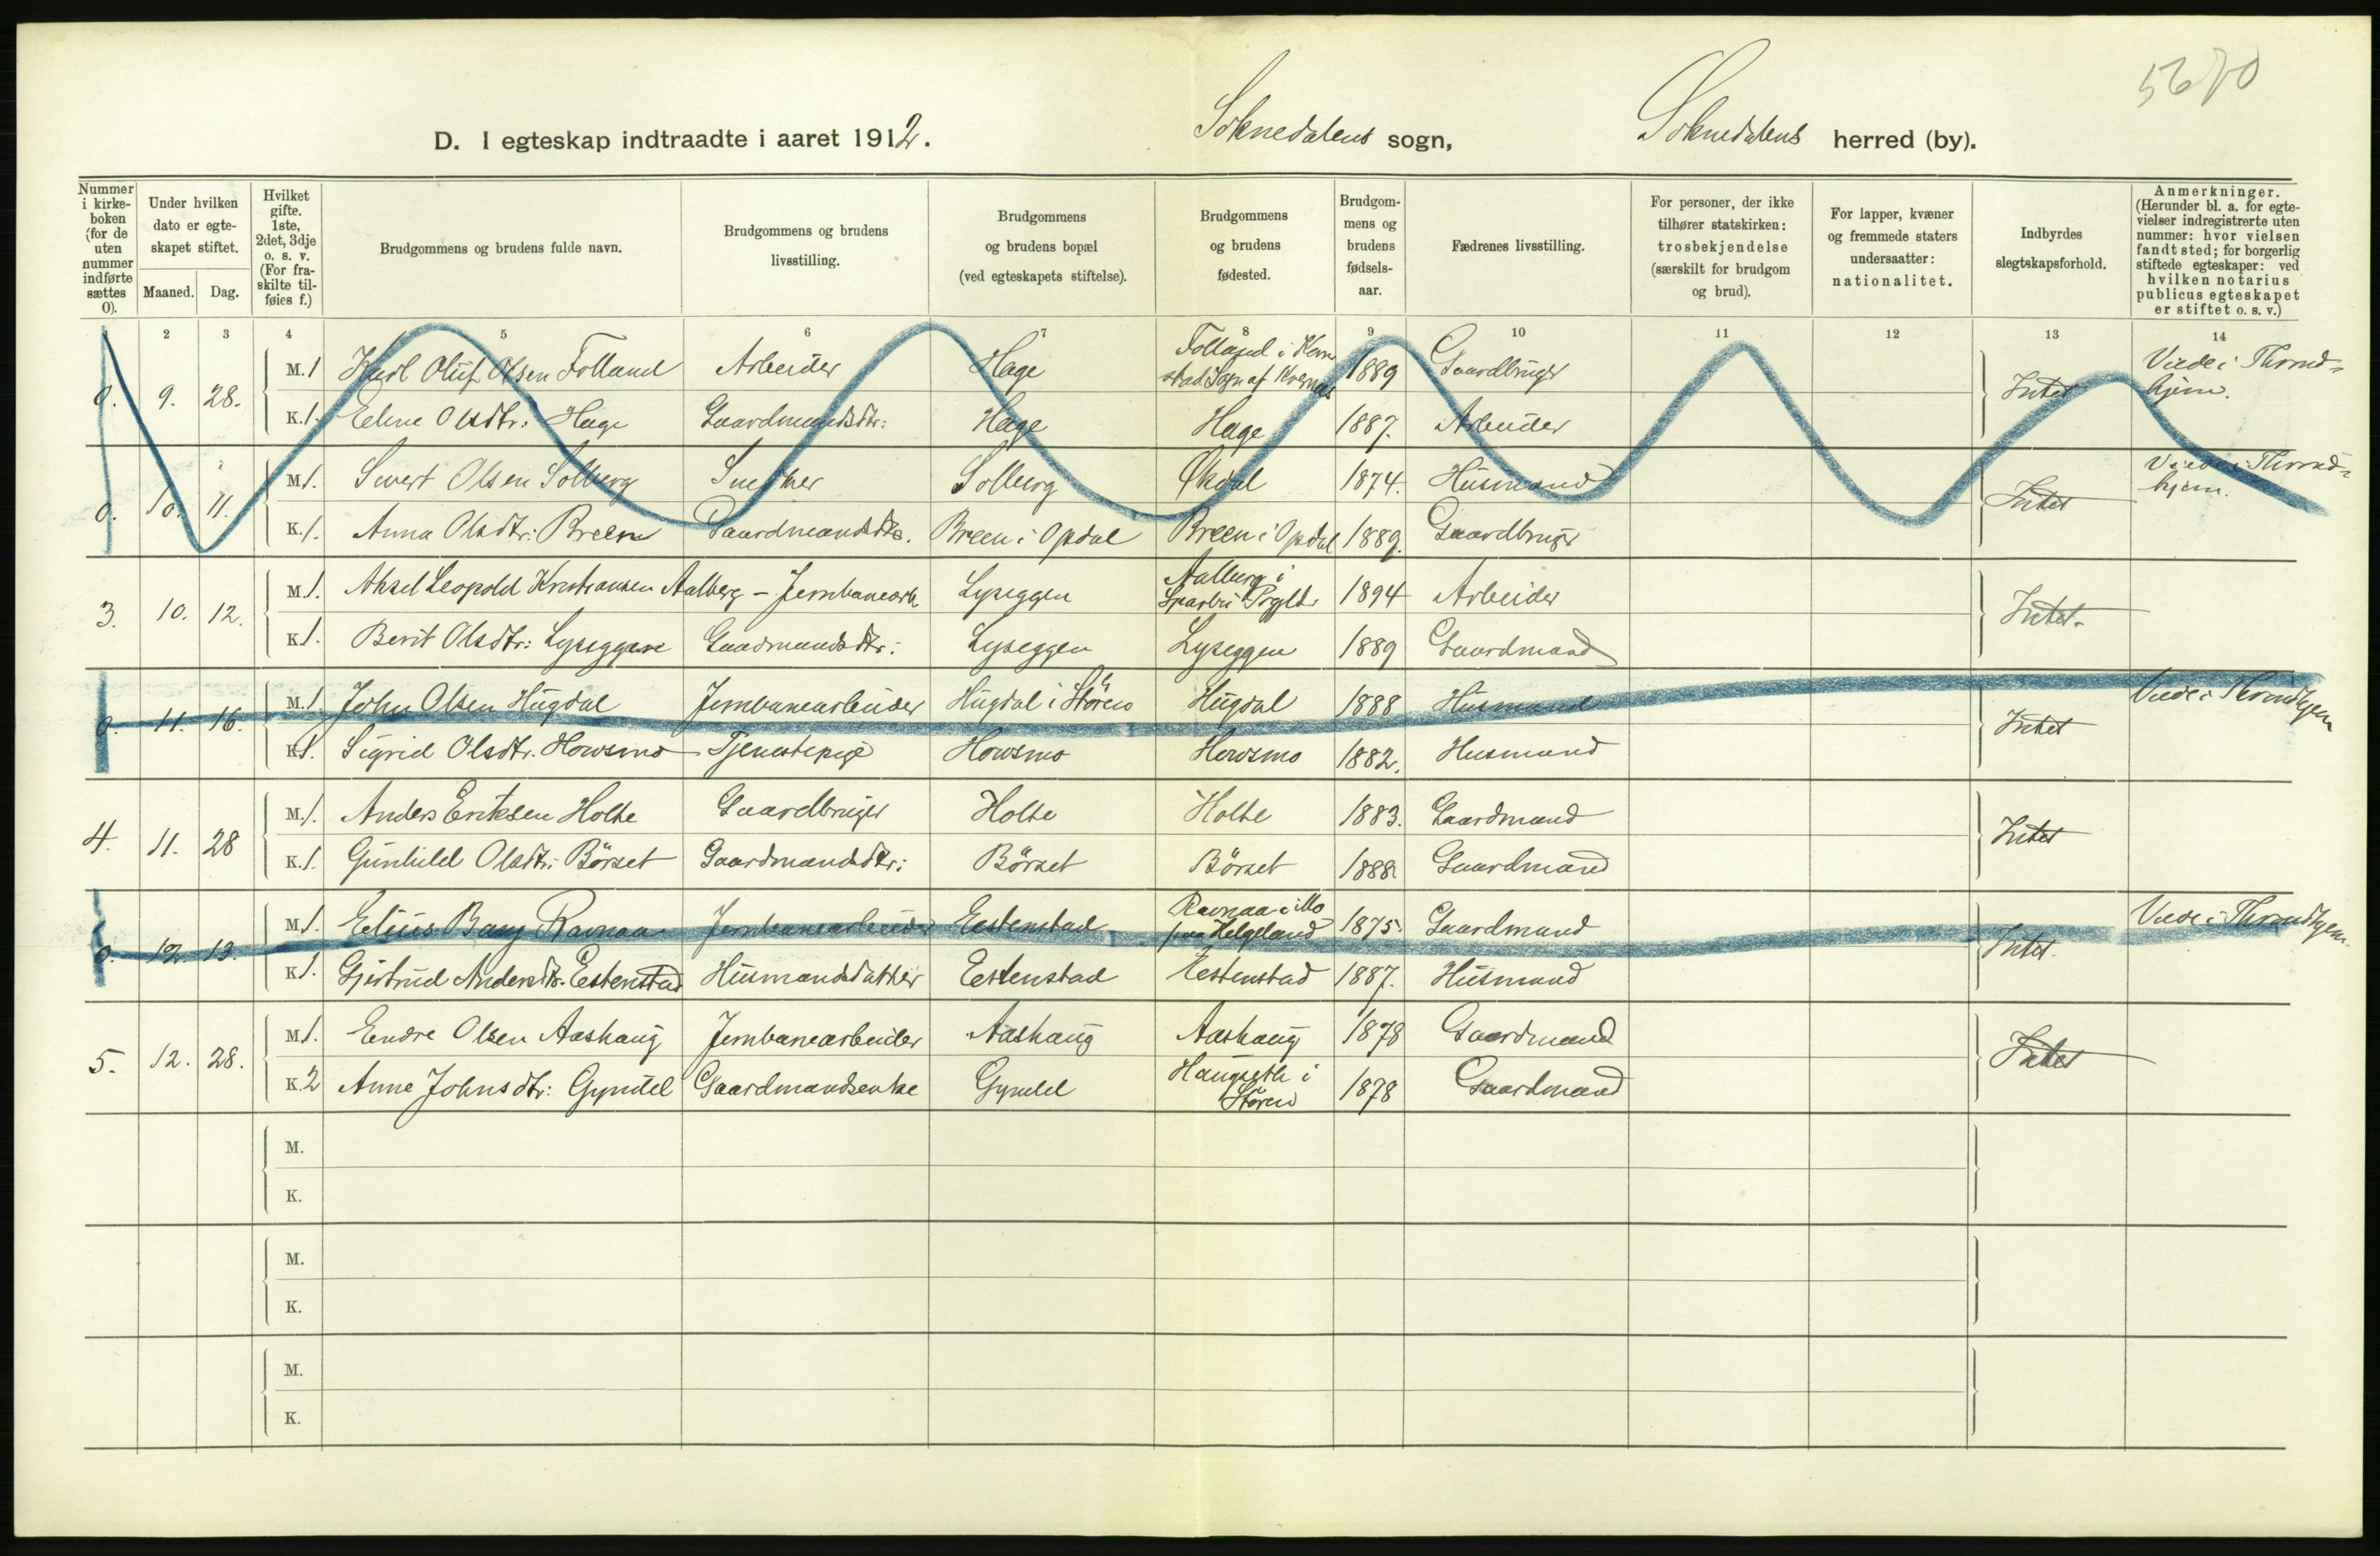 5670
D. I egteskap indtraadte i aaret 1912. Soknedalens sogn, Soknedalens herred (by).
Nummer i kirke-boken (for de uten nummer indførte sættes 0).
Under hvilken dato er egte-skapet stiftet.
Maaned. Dag.
Hvilket gifte. 1ste, 2det, 3dje o. s. v. (For fra-skilte til-føies f.)
Brudgommens og brudens fulde navn.
Brudgommens og brudens livsstilling.
Brudgommens og brudens bopæl (ved egteskapets stiftelse).
Brudgommens og brudens fødested.
Brudgom-mens og brudens fødsels-aar.
Fædrenes livsstilling.
For personer, der ikke tilhører statskirken: trosbekjendelse (særskilt for brudgom og brud).
For lapper, kvæner og fremmede staters undersaatter: nationalitet.
Indbyrdes slegtskapsforhold.
Anmerkninger. (Herunder bl. a. for egte-vielser indregistrerte uten nummer: hvor vielsen fandt sted; for borgerlig stiftede egteskaper: ved hvilken notarius publicus egteskapet er stiftet o. s. v.)
1 2 3 4 5 6 7 8 9 10 11 12 13 14
0. 9. 28. M. 1 Karl Oluf Olsen Folland Arbeider Hage Folland i 1889 Gaardbruger Intet Viede i Thrond-hjem.
K. 1. Eline Olsdtr: Hage Gaardmandsdtr: Hage Hage 1887. Arbeider
0. 10. 11. M. 1. Sivert Olsen Solberg Snedker Solberg Opdal 1874. Husmand Intet Viede i Thrond-hjem.
K. 1. Anna Olsdtr: Breen Gaardmandsdtr. Breen i Opdal Breen i Opdal 1889. Gaardbruger
3. 10. 12. M. 1. Aksel Leopold Kristiansen Aalberg - Jernbanearb. Lyseggen Aalberg i Sparbu 1894 Arbeider Intet.
K. 1. Berit Olsdtr: Lyseggen Gaardmandsdtr: Lyseggen Lyseggen 1889 Gaardmand
0. 11. 16. M. 1 John Olsen Hugdal Jernbanearbeider Hugdal i Støren Hugdal 1888 Husmand Intet Viede i Throndhjem
K. 1. Sigrid Olsdtr. Howsmo Tjenestepige Howsmo Howsmo 1882. Husmand
4. 11. 28 M. 1. Anders Eriksen Holte Gaardbruger Holte Holte 1883. Gaardmand Intet
K. 1. Gunhild Olsdtr: Börset Gaardmandsdtr: Börset Börset 1888 Gaardmand
0. 12. 13. M. 1. Elius Ravnaa Jernbanearbeider Estenstad Ravnaa i Mo paa Helgeland 1875. Gaardmand Intet. Viede i Throndhjem.
K. 1. Gjertrud Andersdtr. Estenstad Husmandsdatter Estenstad Estenstad 1887. Husmand
5. 12. 28. M. 1. Endre Olsen Aashaug Jernbanearbeider Aashaug Aashaug 1878 Gaardmand Intet
K. 2 Anne Johnsdtr: Gynild Gaardmandsenke Gynild Haugseth i Støren 1878 Gaardmand
M.
K.
M.
K.
M.
K.